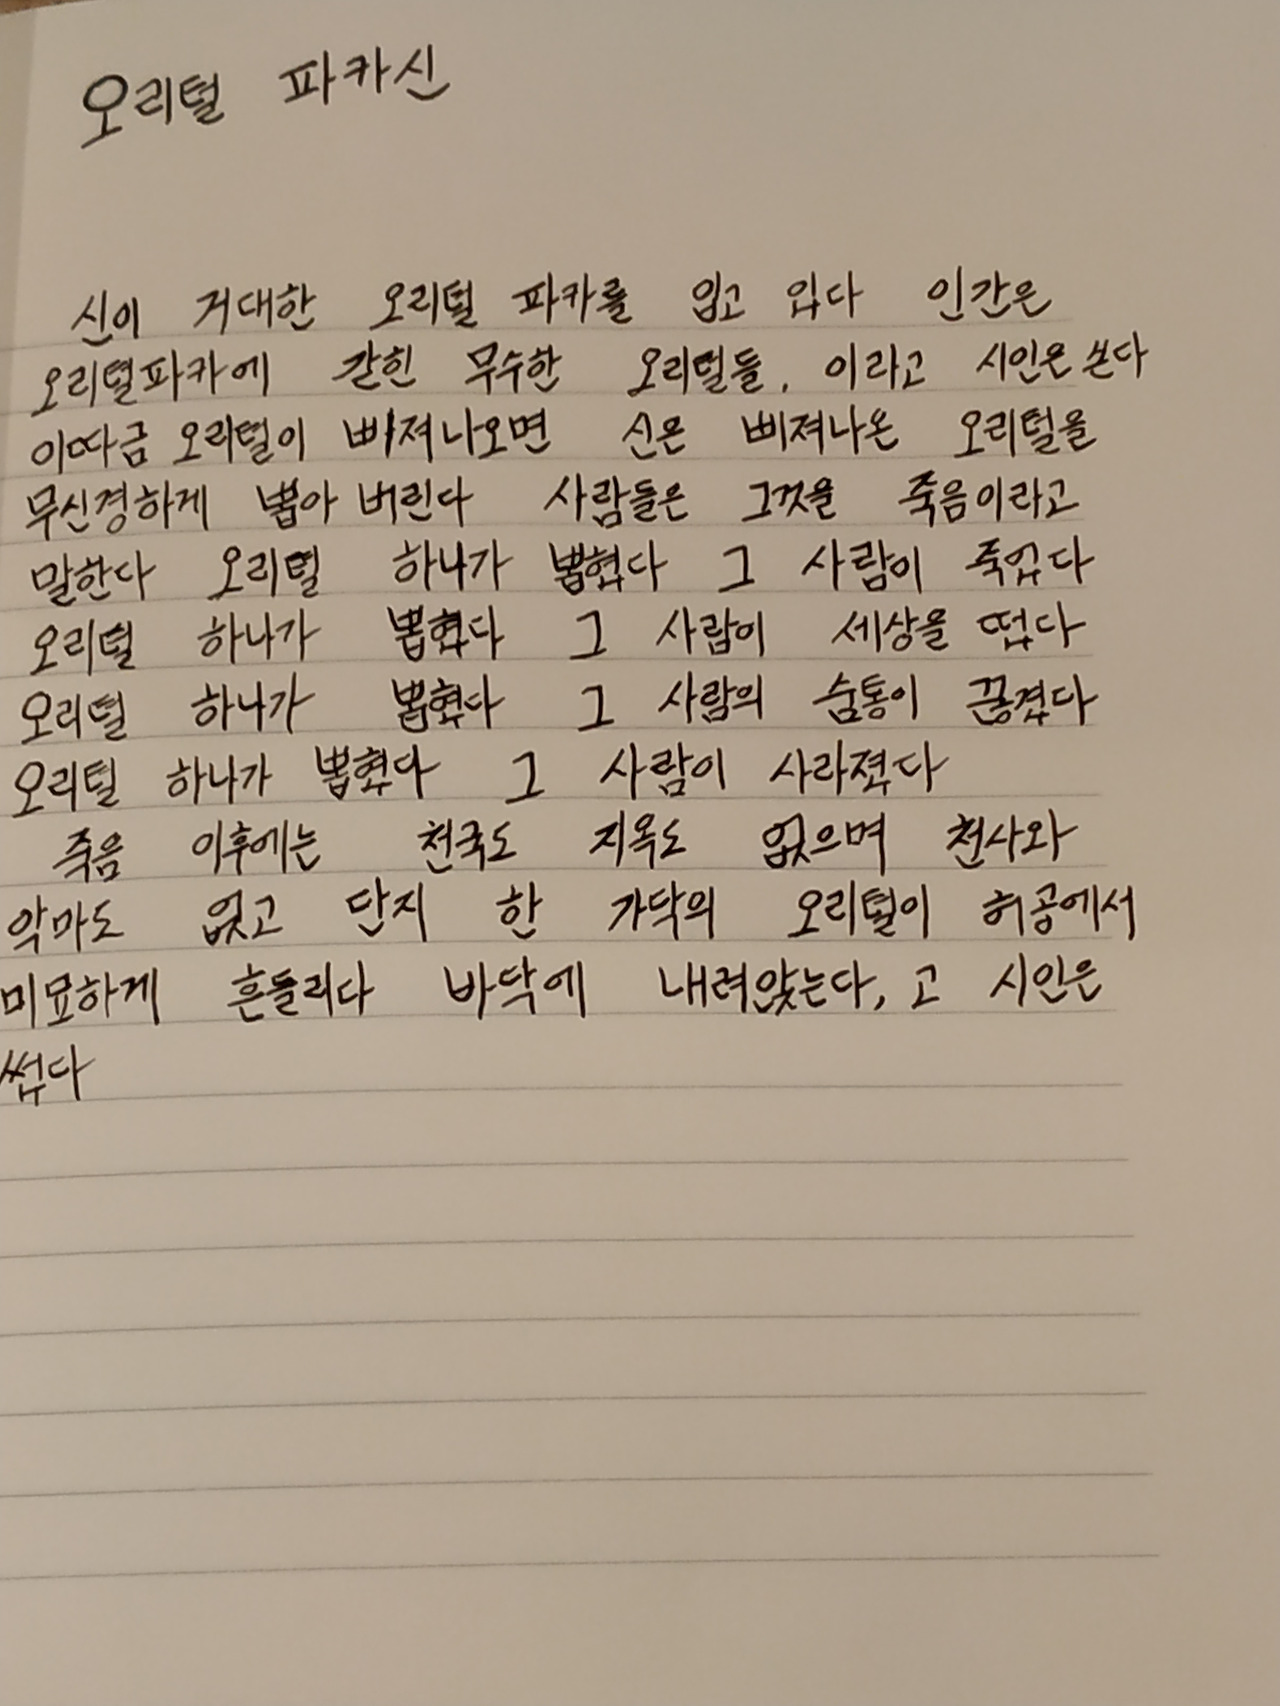 오리털 파카신
신이 거대한 오리털 파카를 입고 있다 인간은
오리털파카에 갇힌 무수한 오리털들, 이라고 시인은 쓴다
이따금 오리털이 빠져나오면 신은 삐져나온 오리털을
무신경하게 뽑아 버린다 사람들은 그것을 죽음이라고
말한다 오리털 하나가 뽑혔다 그 사람이 죽었다
오리털 하나가 뽑혔다 그 사람이 세상을 떴다
오리털 하나가 뽑혔다 그 사람의 숨통이 끊겼다
오리털 하나가 뽑혔다 그 사람이 사라졌다
죽음 이후에는 천국도 지옥도 없으며 천사와
악마도 없고 단지 한 가닥의 오리털이 허공에서
미묘하게 흔들리다 바닥에 내려앉는다, 고 시인은
썼다